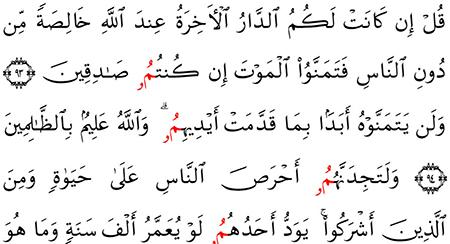 قُلۡ إِن كَانَتۡ لَكُمُ ٱلدَّارُ ٱلۡأٓخِرَةُ عِندَ ٱللَّهِ خَالِصَةٗ مِّن
دُونِ ٱلنَّاسِ فَتَمَنَّوُاْ ٱلۡمَوۡتَ إِن كُنتُمُۥ صَٰدِقِينَ ٩٣
وَلَن يَتَمَنَّوۡهُ أَبَدَۢا بِمَا قَدَّمَتۡ أَيۡدِيهِمُۥۚ وَٱللَّهُ عَلِيمُۢ بِٱلظَّٰلِمِينَ
٩٤ وَلَتَجِدَنَّهُمُۥ أَحۡرَصَ ٱلنَّاسِ عَلَىٰ حَيَوٰةٖ وَمِنَ
ٱلَّذِينَ أَشۡرَكُواْۚ يَوَدُّ أَحَدُهُمُۥ لَوۡ يُعَمَّرُ أَلۡفَ سَنَةٖ وَمَا هُوَ